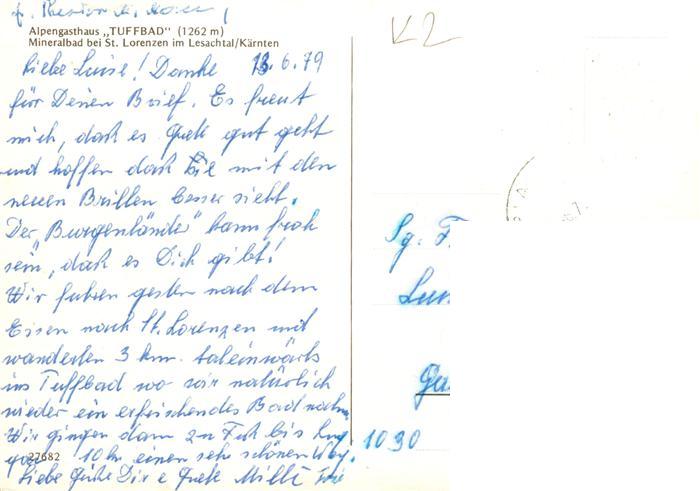 K2
Alpengasthaus „TUFFBAD" (1262 m)
Mineralbad bei St. Lorenzen im Lesachtal/Kärnten
Liebe Luise! Danke 13.6.79
für Deinen Brief. Es freut
mich, daß es Grete gut geht
und hoffen daß sie mit den
neuen Brillen besser sieht.
Der „Burgenländer" kann froh
sein, daß es Dich gibt!
Wir fuhren gestern nach dem
Essen nach St. Lorenzen und
wanderten 3 km. taleinwärts
ins Tuffbad wo wir natürlich
wieder ein erfrischendes Bad nahm.
Wir gingen dann zu Fuß bis
10 km einen sehr schönen Weg.
27682
Liebe Grüße Dir u Grete Milli
Sg. F
Lui
1030